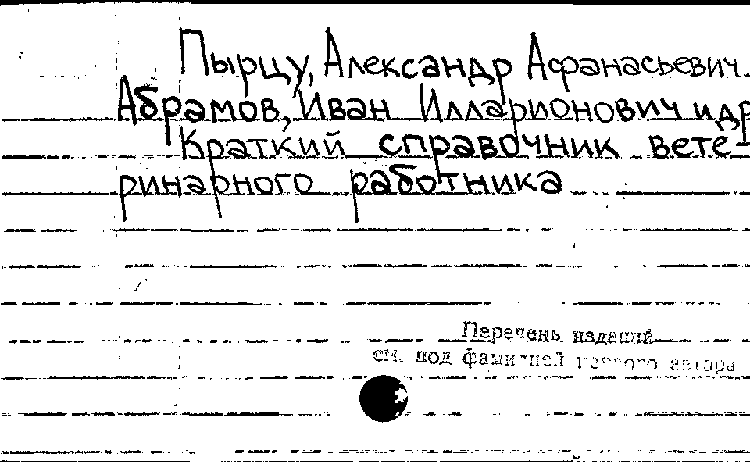 Пырцу, Александр Афанасьевич.
Абрамов, Иван Илларионович и др
Краткий справочник вете-
ринарного работника
Перечень изданий
см. под фамилией первого автора